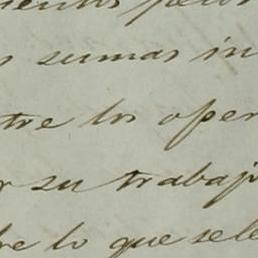 sumas in
tre los oper
su trabajo
re lo que sele